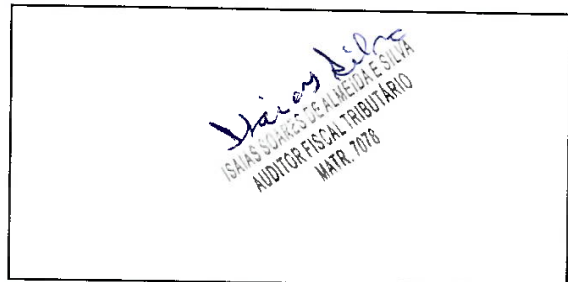 Isaias Silva
ISAIAS SOARES DE ALMEIDA E SILVA
AUDITOR FISCAL TRIBUTÁRIO
MATR. 7078